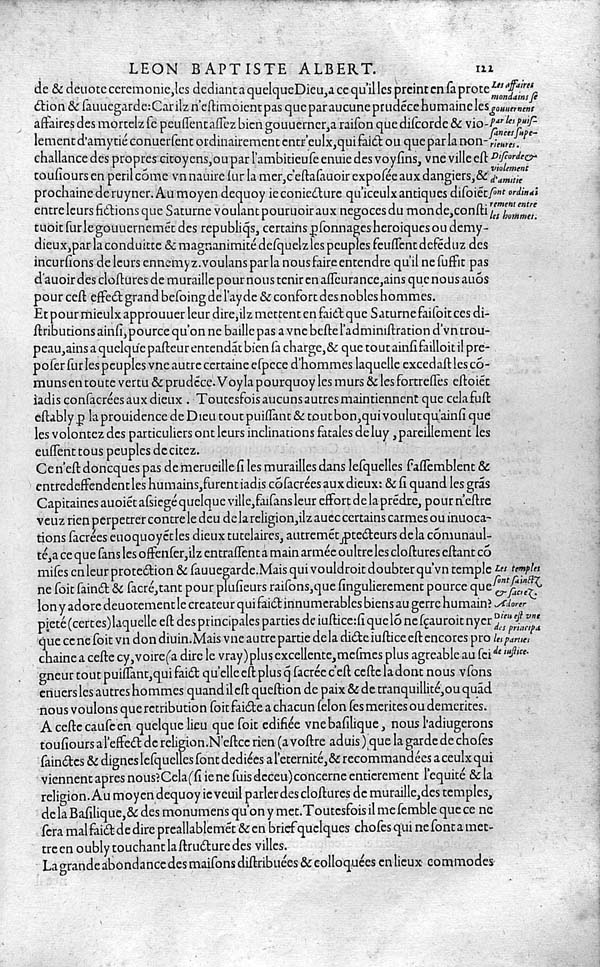 LEON BAPTISTE ALBERT. 122
de & deuote ceremonie, les dediant a quelque Dieu, a ce qu'il les preint en sa prote
ction & sauuegarde: Car ilz n'estimoient pas que par aucune prudẽce humaine les
affaires des mortelz se peussent assez bien gouuerner, a raison que discorde & vio-
lement d'amytié conuersent ordinairement entr'eulx, qui faict ou que par la non-
challance des propres citoyens, ou par l'ambitieuse enuie des voysins, vne ville est
tousiours en peril cõme vn nauire sur la mer, c'est asauoir exposée aux dangiers, &
prochaine de ruyner. Au moyen dequoy ie coniecture qu'iceulx antiques disoiẽt
entre leurs fictions que Saturne voulant pouruoir aux negoces du monde, consti
tuoit sur le gouuernemẽt des republiq̃s, certains ꝑsonnages heroiques ou demy-
dieux, par la conduitte & magnanimité desquelz les peuples feussent defẽduz des
incursions de leurs ennemyz. voulans par la nous faire entendre qu'il ne suffit pas
d'auoir des clostures de muraille pour nous tenir en asseurance, ains que nous auõs
pour cest effect grand besoing de l'ayde & confort des nobles hommes.
Et pour mieulx approuuer leur dire, ilz mettent en faict que Saturne faisoit ces di-
stributions ainsi, pource qu'on ne baille pas a vne beste l'administration d'vn trou-
peau, ains a quelque pasteur entendãt bien sa charge, & que tout ainsi failloit il pre-
poser sur les peuples vne autre certaine espece d'hommes laquelle excedast les cõ-
muns en toute vertu & prudẽce. Voyla pourquoy les murs & les fortresses estoiẽt
iadis consacrées aux dieux. Toutesfois aucuns autres maintiennent que cela fust
estably ꝑ la prouidence de Dieu tout puissant & tout bon, qui voulut qu'ainsi que
les volontez des particuliers ont leurs inclinations fatales de luy, pareillement les
eussent tous peuples de citez.
Ce n'est doncques pas de merueille si les murailles dans lesquelles s'assemblent &
entredeffendent les humains, furent iadis cõsacrées aux dieux: & si quand les grãs
Capitaines auoiẽt assiegé quelque ville, faisans leur effort de la prẽdre, pour n'estre
veuz rien perpetrer contre le deu de la religion, ilz auec certains carmes ou inuoca-
tions sacrées euoquoyẽt les dieux tutelaires, autremẽt ꝓtecteurs de la cõmunaul-
té, a ce que sans les offenser, ilz entrassent a main armée oultre les clostures estant cõ
mises en leur protection & sauuegarde. Mais qui vouldroit doubter qu'vn temple
ne soit sainct & sacré, tant pour plusieurs raisons, que singulierement pource que
lon y adore deuotement le createur qui faict innumerables biens au gerre humain?
pieté (certes) laquelle est des principales parties de iustice: si que lõ ne sçauroit nyer
que ce ne soit vn don diuin. Mais vne autre partie de la dicte iustice est encores pro
chaine a ceste cy, voire (a dire le vray) plus excellente, mesmes plus agreable au sei
gneur tout puissant, qui faict qu'elle est plus q̃ sacrée c'est ceste la dont nous vsons
enuers les autres hommes quand il est question de paix & de tranquillité, ou quãd
nous voulons que retribution soit faicte a chacun selon ses merites ou demerites.
A ceste cause en quelque lieu que soit edifiée vne basilique, nous l'adiugerons
tousiours a l'effect de religion. N'est ce rien (a vostre aduis) que la garde de choses
sainctes & dignes lesquelles sont dediées a l'eternité, & recommandées a ceulx qui
viennent apres nous? Cela (si ie ne suis deceu) concerne entierement l'equité & la
religion. Au moyen dequoy ie veuil parler des clostures de muraille, des temples,
de la Basilique, & des monumens qu'on y met. Toutesfois il me semble que ce ne
sera mal faict de dire preallablemẽt & en brief quelques choses qui ne sont a met-
tre en oubly touchant la structure des villes.
La grande abondance des maisons distribuées & colloquées en lieux commodes
Les affaires
mondains se
gouuernent
par les puis-
sances supe-
rieures.
Discorde &
violement
d'amitie
sont ordinai
rement entre
les hommes.
Les temples
sont sainctz
& sacrez.
Adorer
Dieu est vne
des principa
les parties
de iustice.